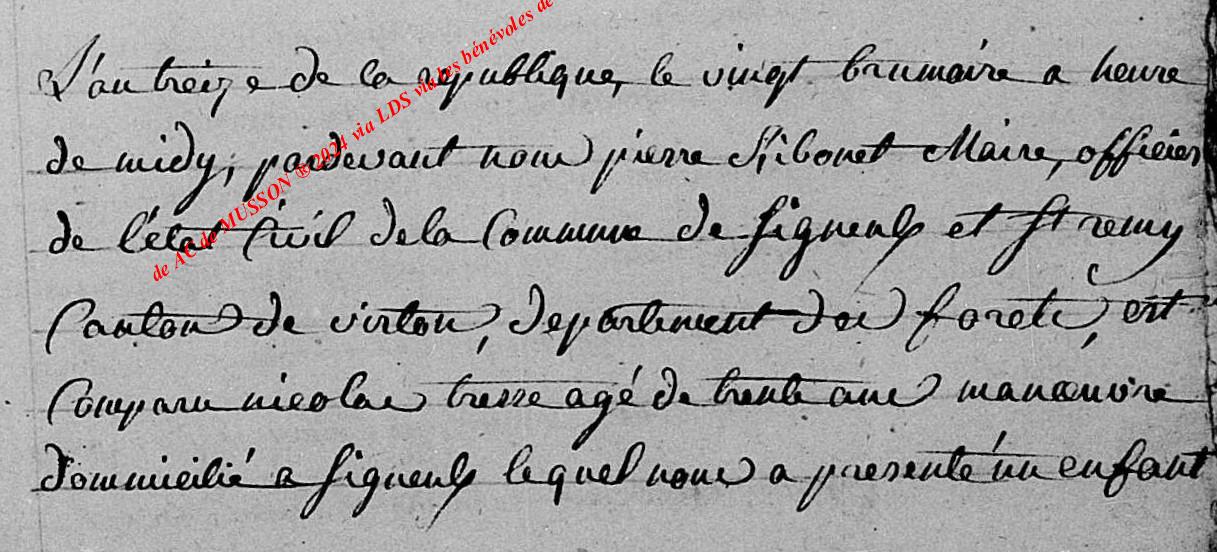 L'an treize de la republique, le vingt brumaire a heure
de midy, pardevant nous pierre Ribonet Maire, officier
de l'état Civil de la Commune de signeulx et st remy
Canton de virton, departement des forets, est
Comparu nicolas tresse agé de trente ans manoeuvre
domicilié a signeulx lequel nous a presenté un enfant
de AC de MUSSON ® 2024 via LDS via les bénévoles de